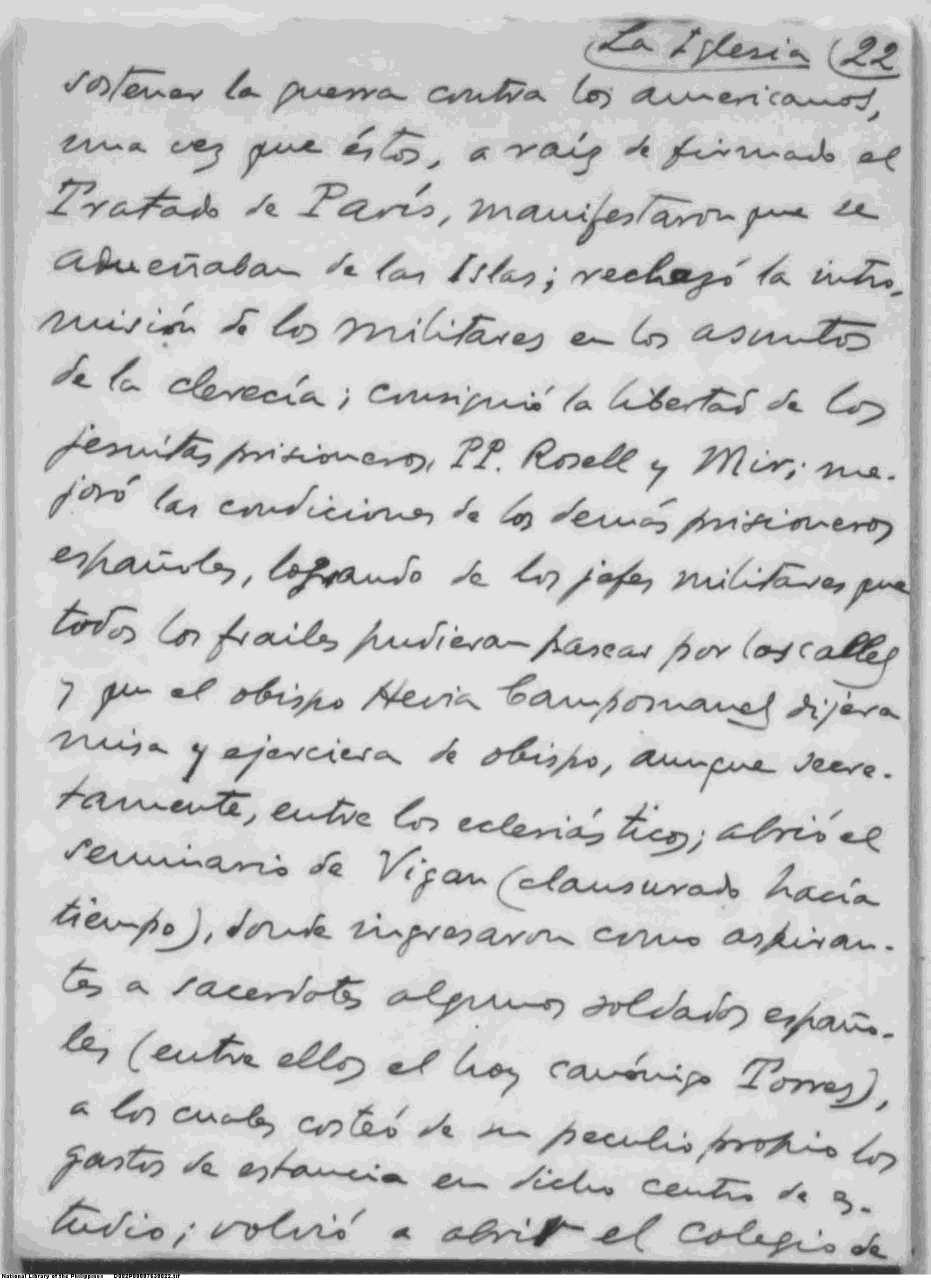 La Iglesia (22
sostener la guerra contra los americanos,
una vez que éstos, a raíz de firmado el
Tratado de París, manifestaron que se
adueñaban de las Islas; rechazó la intro-
misión de los militares en los asuntos
de la clerecía; consiguió la libertad de los
jesuitas prisioneros, PP. Rosell y Mir; me-
joró las condiciones de los demás prisioneros
españoles, logrando de los jefes militares que
todos los frailes pudieran pasear por las calles
y que el obispo Hevia Campomanes dijera
misa y ejerciera de obispo, aunque secre-
tamente, entre los eclesiásticos; abrió el
seminario de Vigan (clausurado hacía
tiempo), donde ingresaron como aspiran-
tes a sacerdotes algunos soldados españo-
les (entre ellos el hoy canónigo Torres),
a los cuales costeó de su peculio propio los
gastos de estancia en dicho centro de es-
tudio; volvió a abrir el colegio de
National Library of the Philippines D002P00097630022.tif